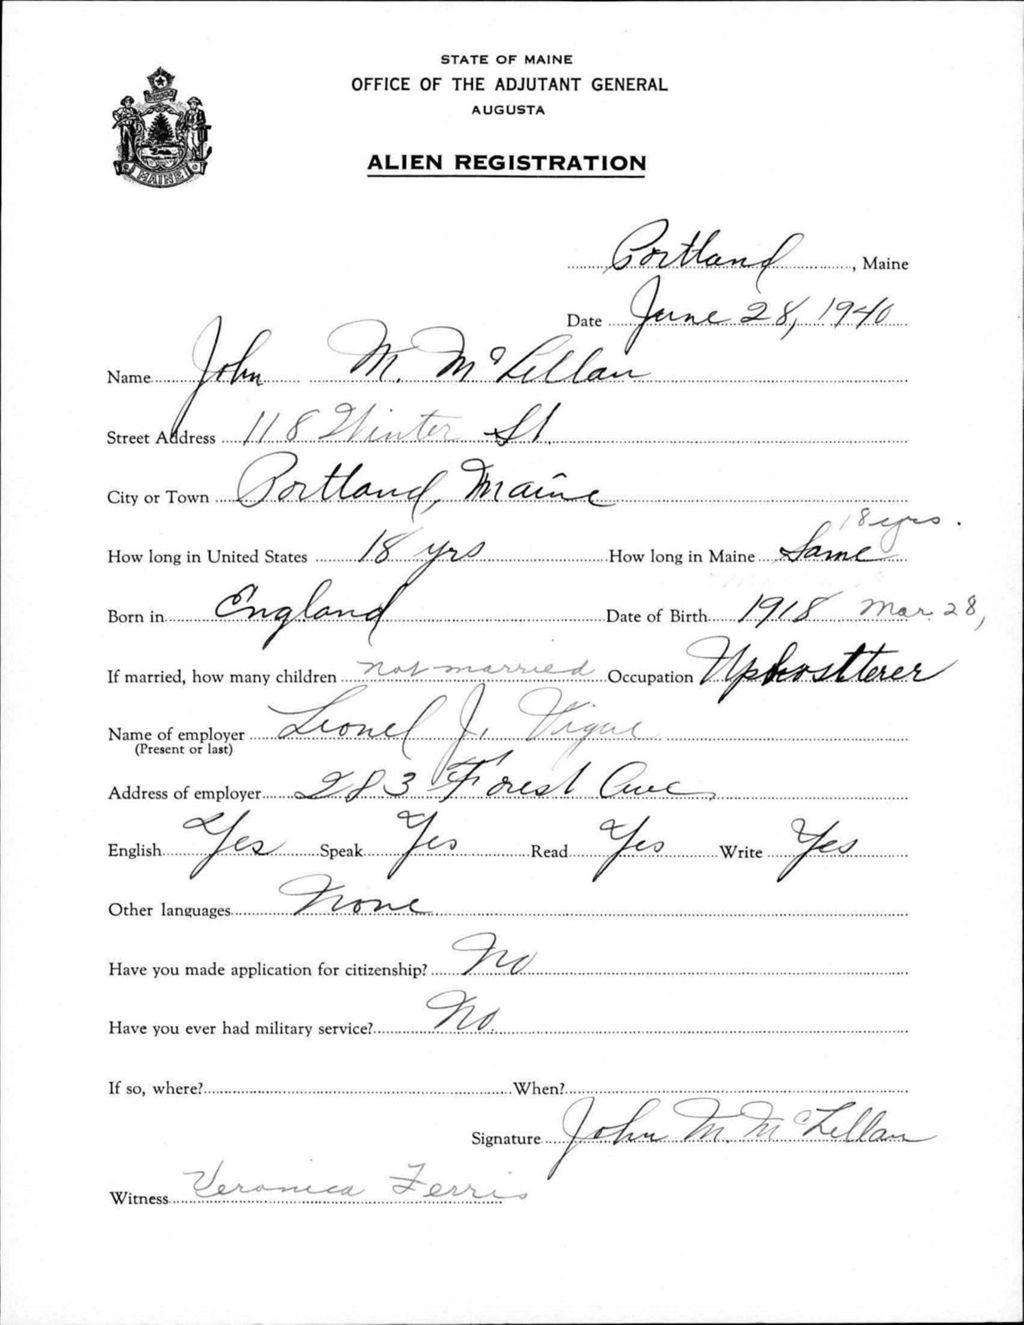 STATE OF MAINE
OFFICE OF THE ADJUTANT GENERAL
AUGUSTA
ALIEN REGISTRATION
MAINE
Portland, Maine
Date June 28, 1940
Name John M. McLellan
Street Address 118 Winter St.
City or Town Portland, Maine
18 yrs.
How long in United States 18 yrs How long in Maine Same
Born in England Date of Birth 1918 Mar. 28,
If married, how many children not married Occupation Upholstterer
Name of employer Lionel J. Vigue
(Present or last)
Address of employer 283 Forest Ave,
English Yes Speak Yes Read Yes Write Yes
Other languages None
Have you made application for citizenship? No
Have you ever had military service? No.
If so, where? When?
Signature John M. McLellan
Witness Veronica Ferris